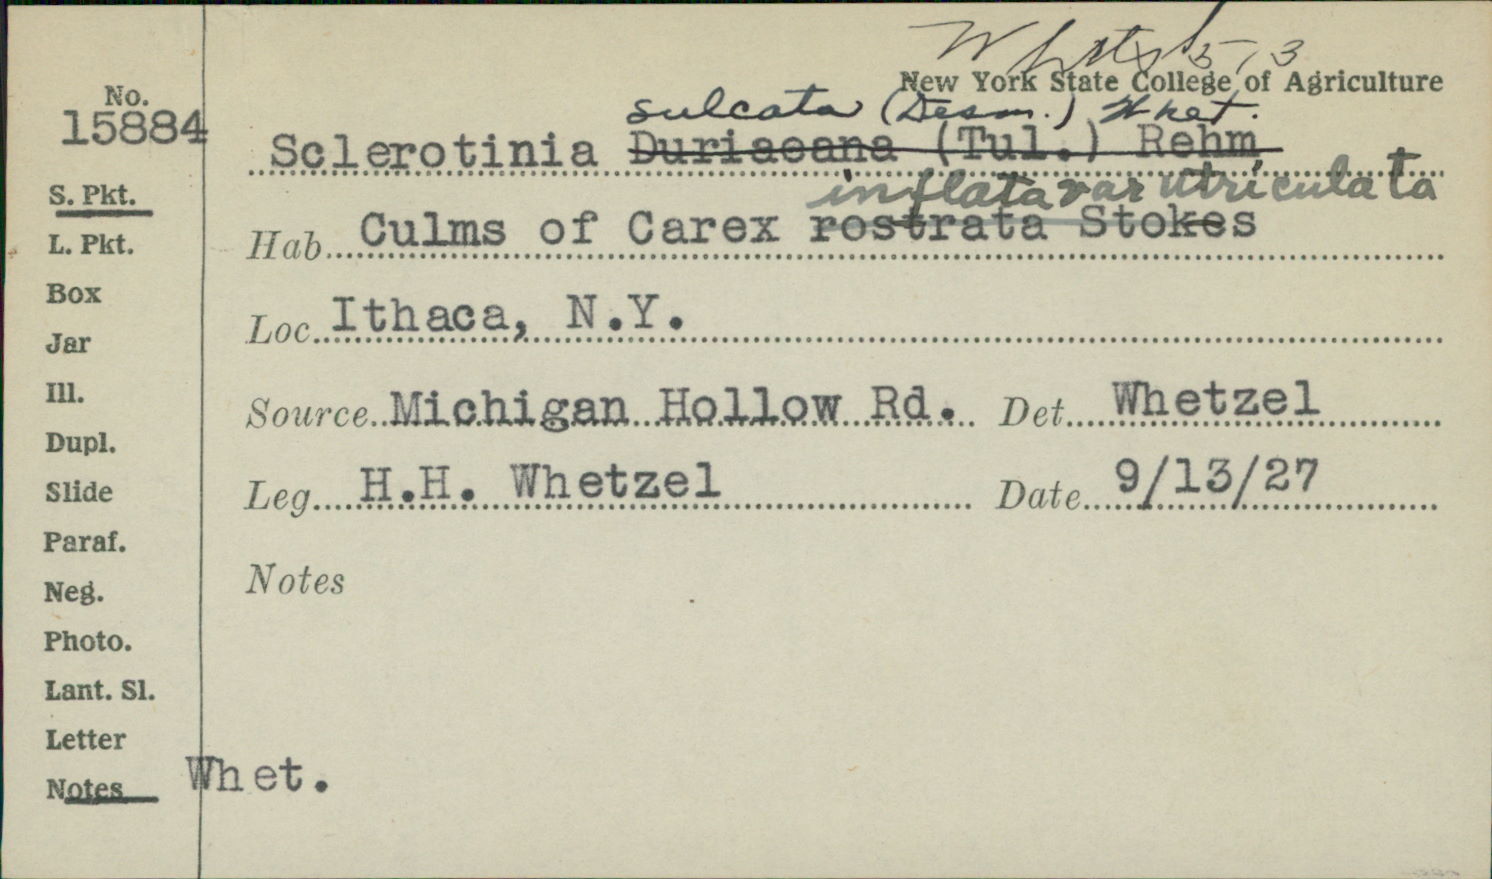 New York State College of Agriculture
No.
15884
sulcata (Desm.) Whet.
Sclerotinia Duriaeana (Tul.) Rehm
inflata var utriculata
Hab. Culms of Carex rostrata Stokes
Loc. Ithaca, N.Y.
Source Michigan Hollow Rd. Det. Whetzel
Leg. H.H. Whetzel Date 9/13/27
Notes
S. Pkt.
L. Pkt.
Box
Jar
Ill.
Dupl.
Slide
Paraf.
Neg.
Photo.
Lant. Sl.
Letter
Notes Whet.